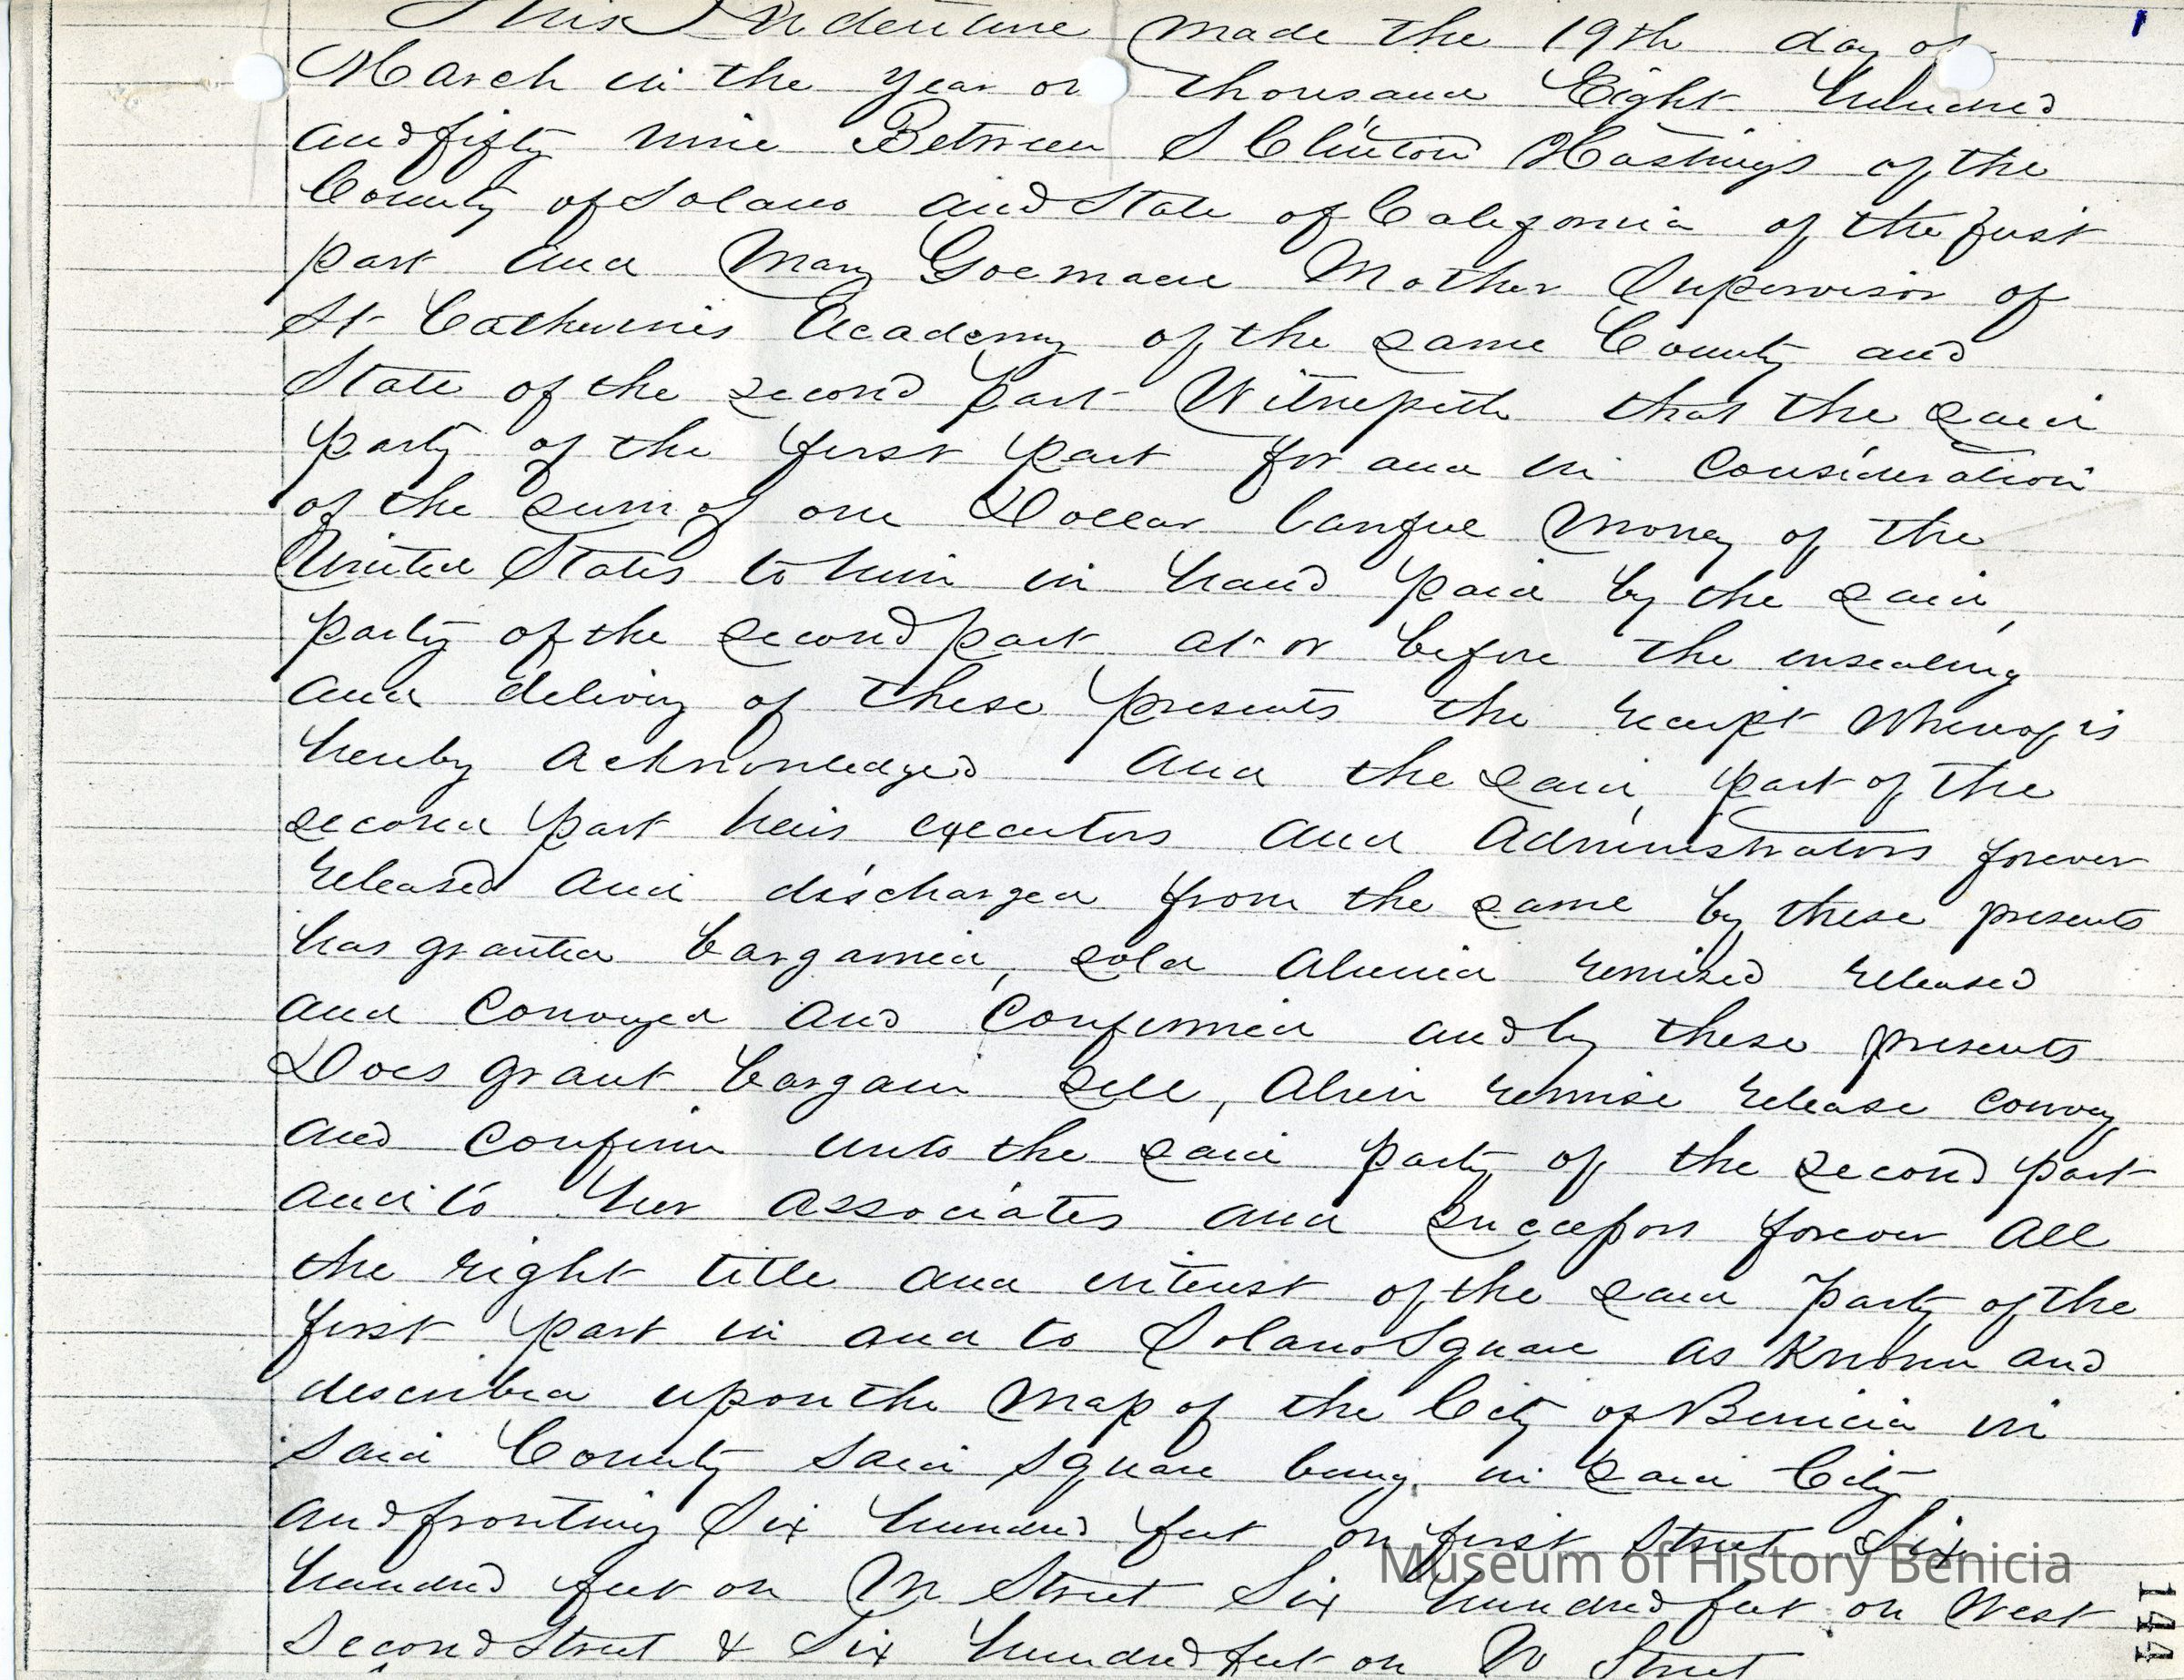 This Indenture made the 19th day of
March in the year one thousand Eight hundred
and fifty nine Between S Clinton Hastings of the
County of Solano and State of California of the first
part and Mary Goemaere Mother Supervisor of
St Catherines Academy of the same County and
State of the second part Witnesseth that the said
party of the first part for and in Consideration
of the sum of one Dollar lawful money of the
United States to him in hand paid by the said
party of the second part at or before the ensealing
and delivery of these presents the receipt whereof is
hereby acknowledged and the said part of the
second part heirs executors and administrators forever
released and discharged from the same by these presents
has granted bargained, sold aliened remised released
and Conveyed and Confirmed and by these presents
Does grant bargain sell, alien remise release convey
and confirm unto the said party of the second part
and to her associates and successors forever all
the right title and interest of the said party of the
first part in and to Solano Square as known and
described upon the map of the City of Benicia in
said County said square being in said City
and fronting Six hundred feet on first street Six
hundred feet on M Street Six hundred feet on West
Second Street & Six hundred feet on N Street
Museum of History Benicia
144
1